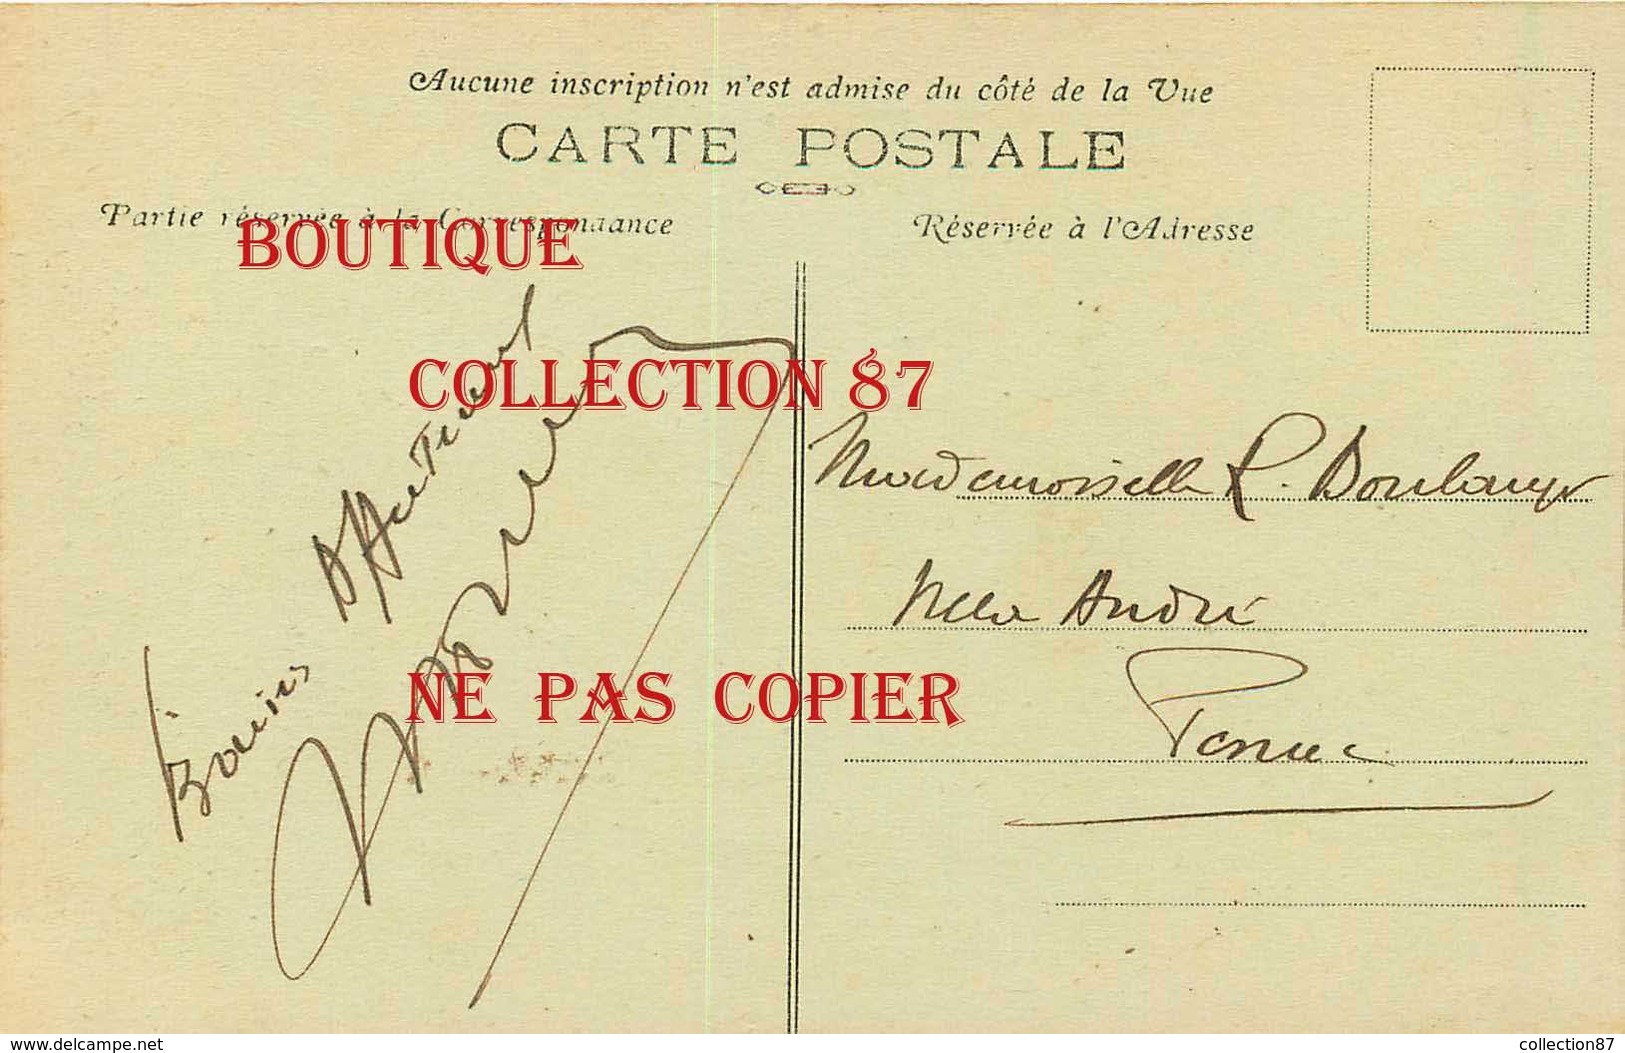 Aucune inscription n'est admise du côté de la Vue
CARTE POSTALE
Partie réservée à la Correspondance
Réservée à l'Adresse
BOUTIQUE
COLLECTION 87
NE PAS COPIER
Bains
d'Auteuil
Mademoiselle R. Boulanger
Villa André
www.delcampe.net
collection87